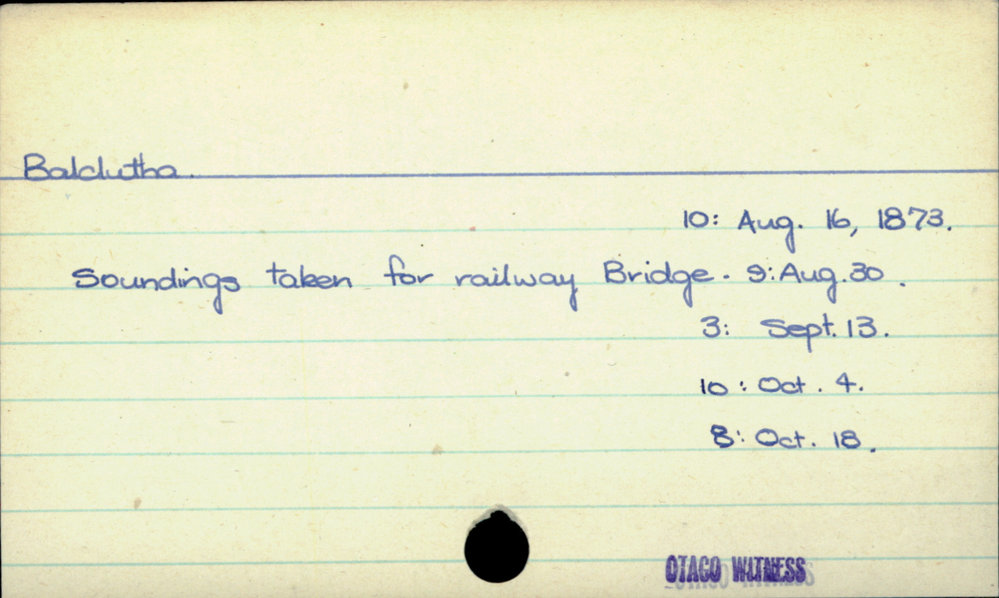 Balclutha.
10: Aug. 16, 1873.
Soundings taken for railway Bridge. 9: Aug. 30.
3: Sept. 13.
10: Oct. 4.
8: Oct. 18.
OTAGO WITNESS